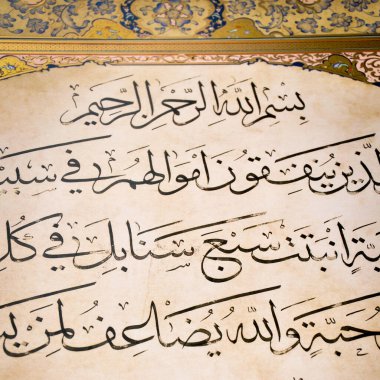 بسم الله الرحمن الرحيم
الذين ينفقون اموالهم في سبيل
حبة انبتت سبع سنابل في كل
حبة والله يضاعف لمن